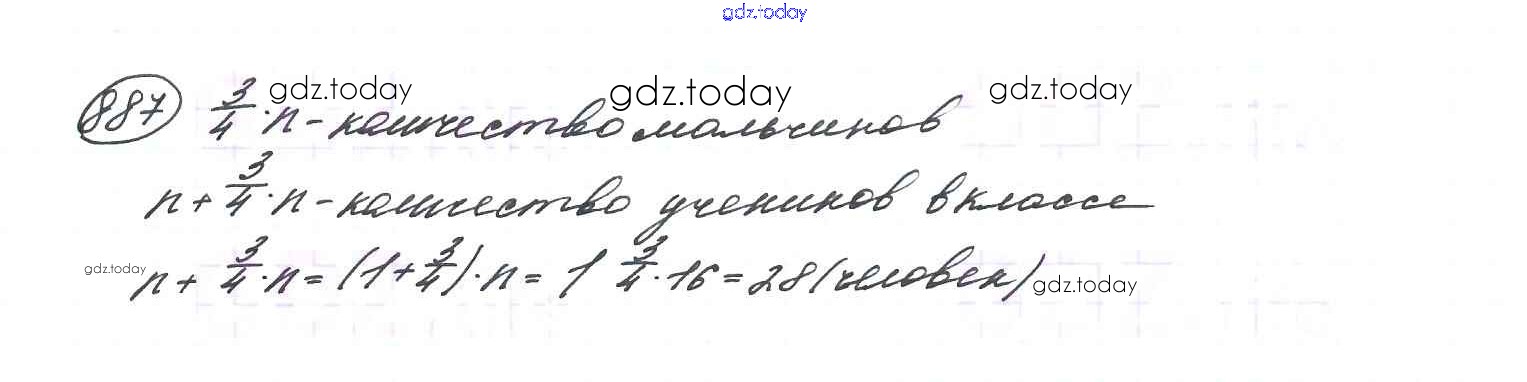 gdz.today
887 3/4 · n - количество мальчиков gdz.today gdz.today gdz.today
n + 3/4 · n - количество учеников в классе
gdz.today n + 3/4 · n = (1 + 3/4) · n = 1 3/4 · 16 = 28 (человек) gdz.today